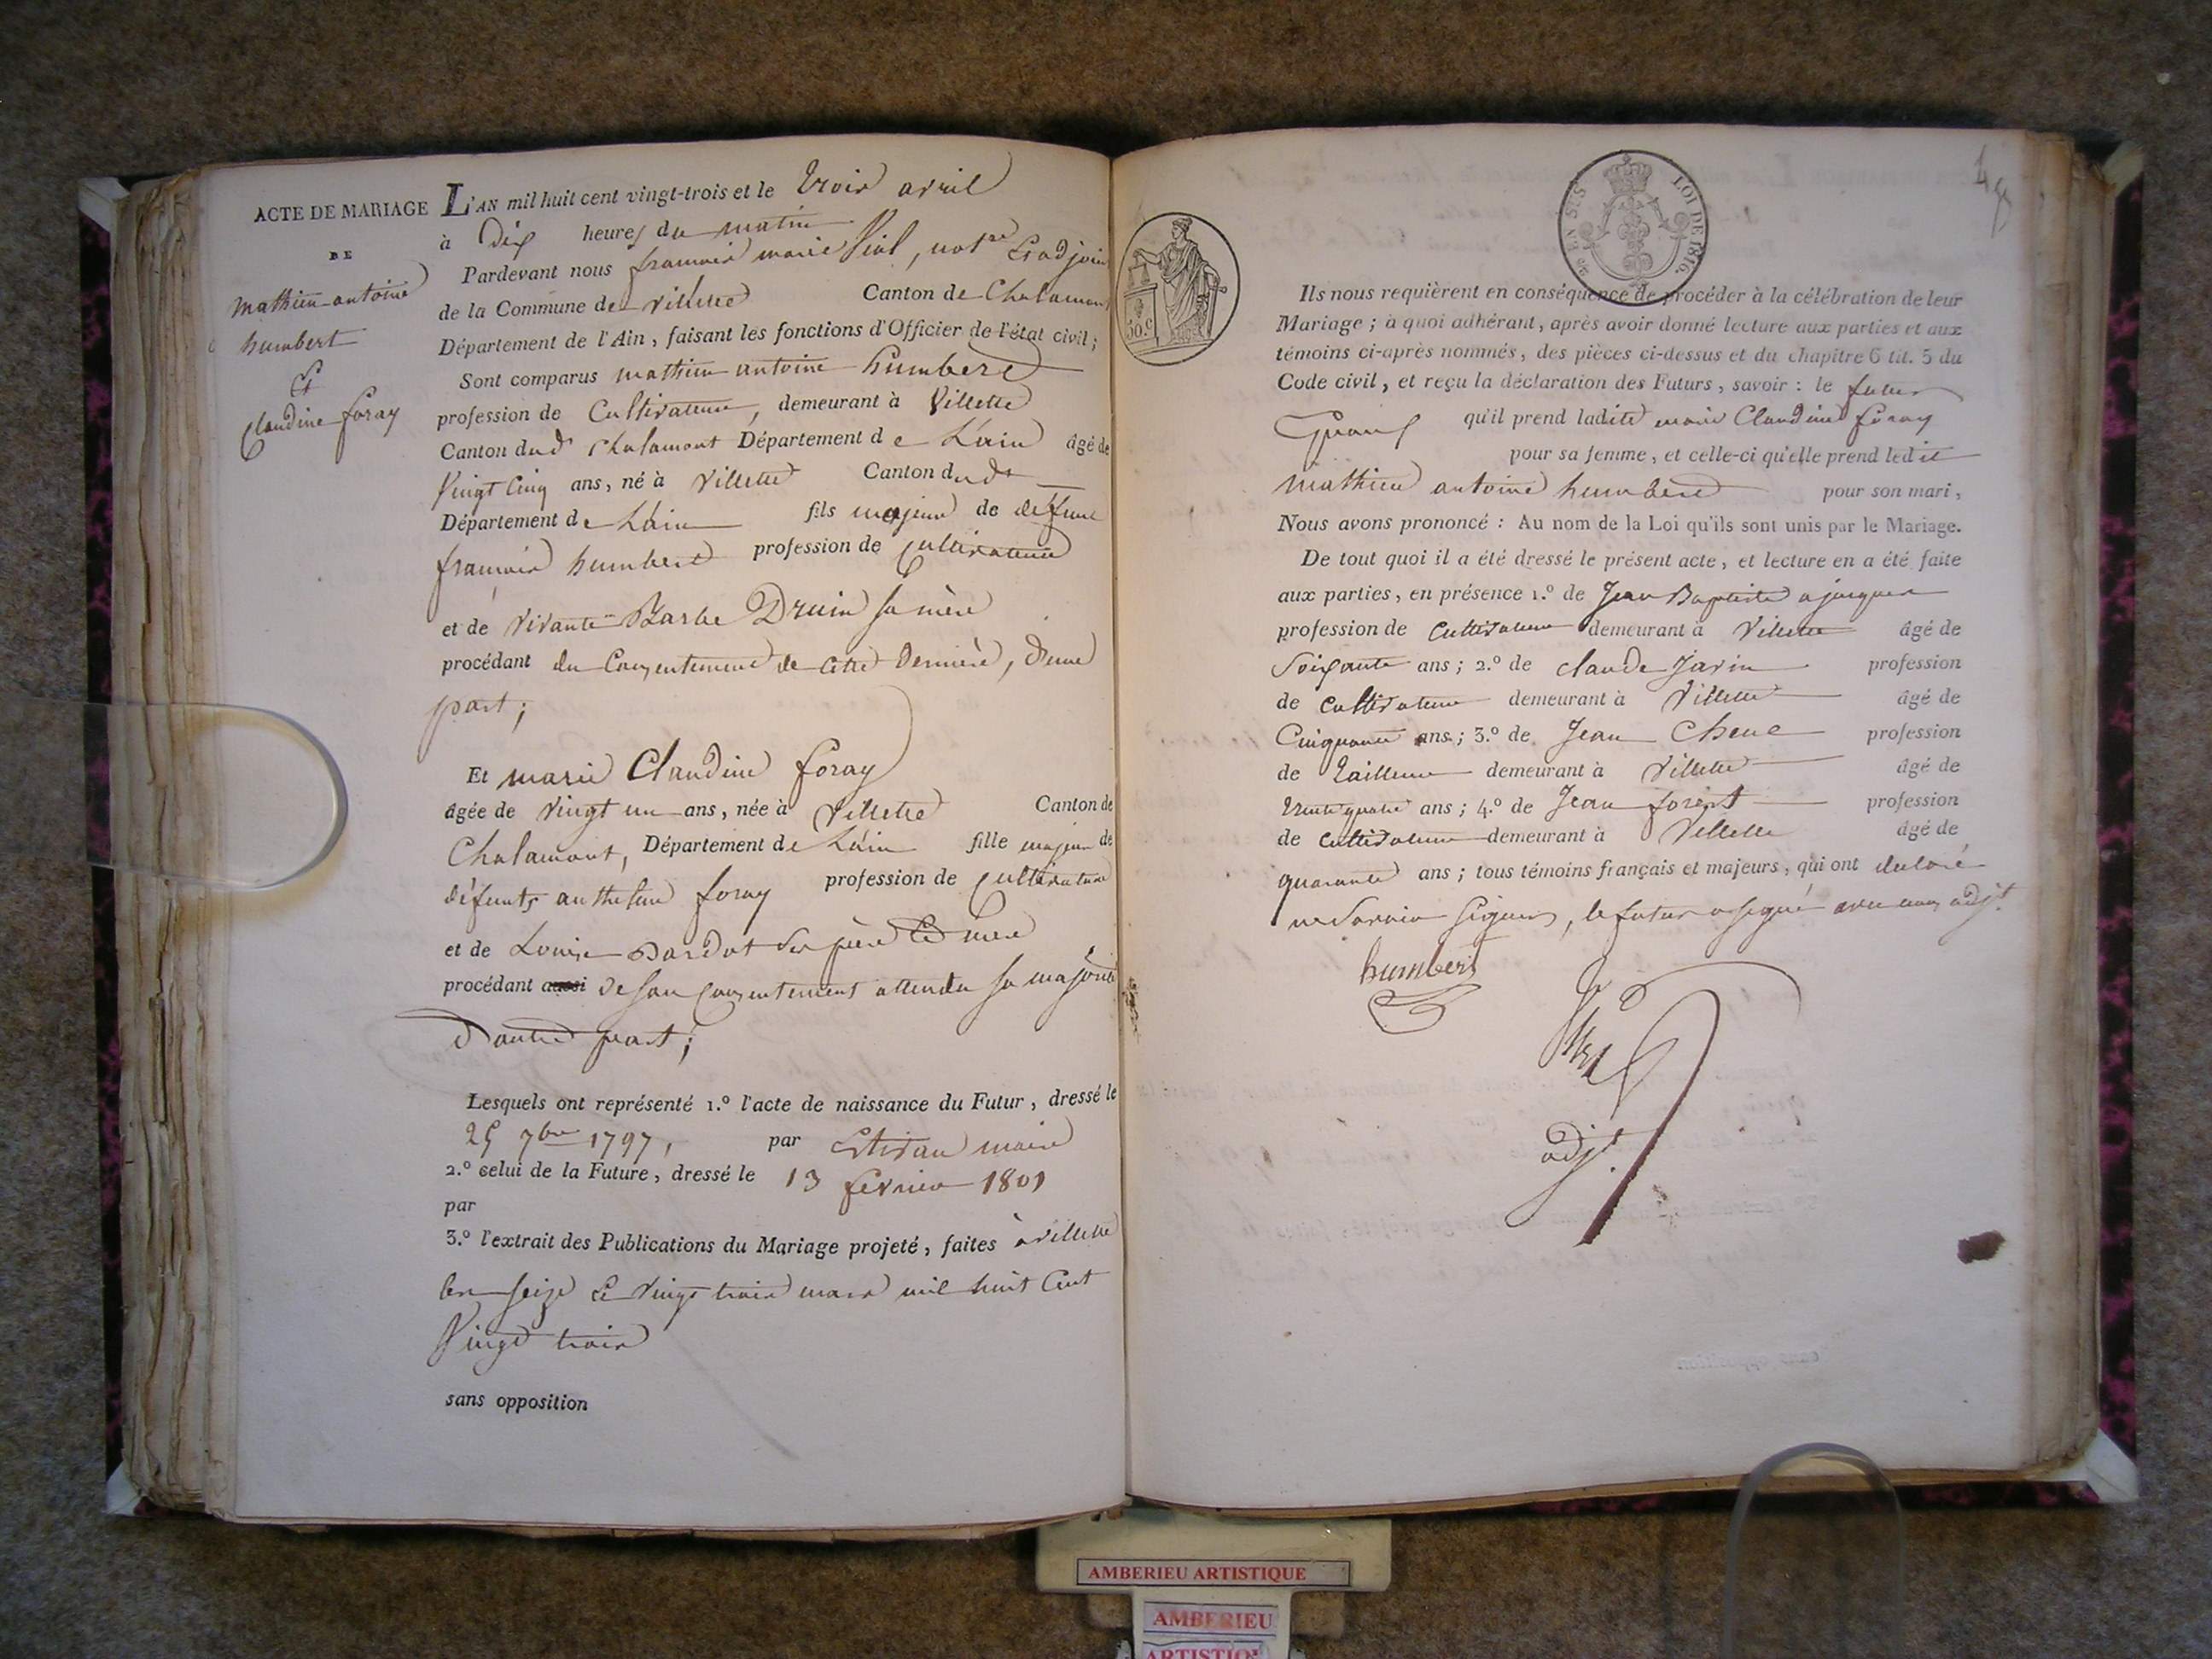 ACTE DE MARIAGE
DE
mathieu antoine
humbert
Et
Claudine foray
L'AN mil huit cent vingt-trois et le trois avril
à dix heures du matin
Pardevant nous françois marie Vial, not.re Et adjoint
de la Commune de villette Canton de Chalamont
Département de l'Ain, faisant les fonctions d'Officier de l'état civil;
Sont comparus mathieu antoine humbert
profession de Cultivateur, demeurant à Villette
Canton dud.t Chalamont Département de L'ain âgé de
Vingt Cinq ans, né à Villette Canton dud.t
Département de L'ain fils majeur de defunt
francois humbert profession de Cultivateur
et de vivante Barbe Druin sa mère
procédant du Consentement de cette Dernière, d'une
part;
Et marie Claudine foray
âgée de vingt un ans, née à Villette Canton de
Chalamont, Département de L'ain fille majeur de
défunts anthelme foray profession de Cultivateur
et de Louise Dardot ses père Et mere
procédant aussi de son Consentement attendu sa majorité
D'autre part;
Lesquels ont représenté 1.º l'acte de naissance du Futur, dressé le
25 7bre 1797, par maire
2.º celui de la Future, dressé le 13 fevrier 1801
par
3.º l'extrait des Publications du Mariage projeté, faites à villette
les seize Et Vingt trois mars mil huit Cent
Vingt trois
sans opposition
30.c
EN SUS
LOI DE 1816.
48
Ils nous requièrent en conséquence de procéder à la célébration de leur
Mariage; à quoi adhérant, après avoir donné lecture aux parties et aux
témoins ci-après nommés, des pièces ci-dessus et du chapitre 6 tit. 5 du
Code civil, et reçu la déclaration des Futurs, savoir: le futur
qu'il prend ladite marie Claudine foray
pour sa femme, et celle-ci qu'elle prend ledit
mathieu antoine humbert pour son mari,
Nous avons prononcé: Au nom de la Loi qu'ils sont unis par le Mariage.
De tout quoi il a été dressé le présent acte, et lecture en a été faite
aux parties, en présence 1.º de Jean Baptiste
profession de Cultivateur demeurant à Villette âgé de
Soixante ans; 2.º de claude Jarin profession
de Cultivateur demeurant à Villette âgé de
Cinquante ans; 3.º de Jean Chene profession
de tailleur demeurant à Villette âgé de
trente quatre ans; 4.º de Jean forest profession
de Cultivateur demeurant à Villette âgé de
quarante ans; tous témoins français et majeurs, qui ont declaré
ne Savoir Signer, le futur a signé avec nous adj.t
humbert
Vial
adj.t
AMBERIEU ARTISTIQUE
AMBERIEU
ARTISTIQUE